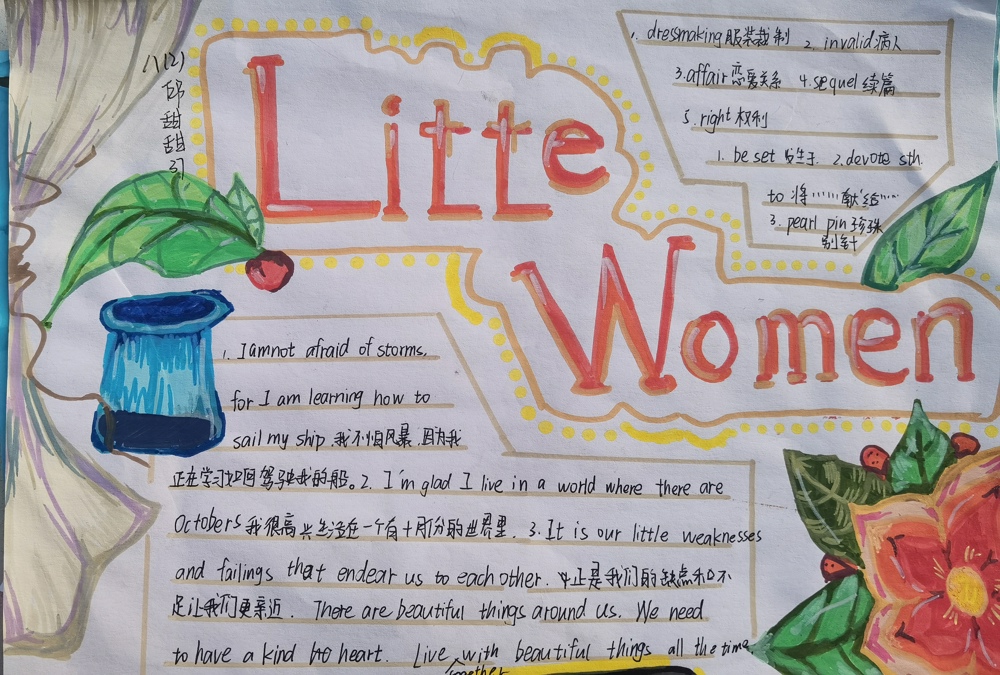 八(2)
邱
甜
甜
Litte
Women
1. dressmaking 服装裁制 2. invalid 病人
3. affair 恋爱关系 4. sequel 续篇
5. right 权利
1. be set 发生于 2. devote sth.
to 将……献给……
3. pearl pin 珍珠
别针
1. I am not afraid of storms,
for I am learning how to
sail my ship. 我不怕风暴,因为我
正在学习如何驾驶我的船。2. I'm glad I live in a world where there are
Octobers 我很高兴生活在一个有十月份的世界里. 3. It is our little weaknesses
and failings that endear us to each other. 正是我们的缺点和不
足让我们更亲近. There are beautiful things around us. We need
to have a kind heart. Live with beautiful things all the time
together